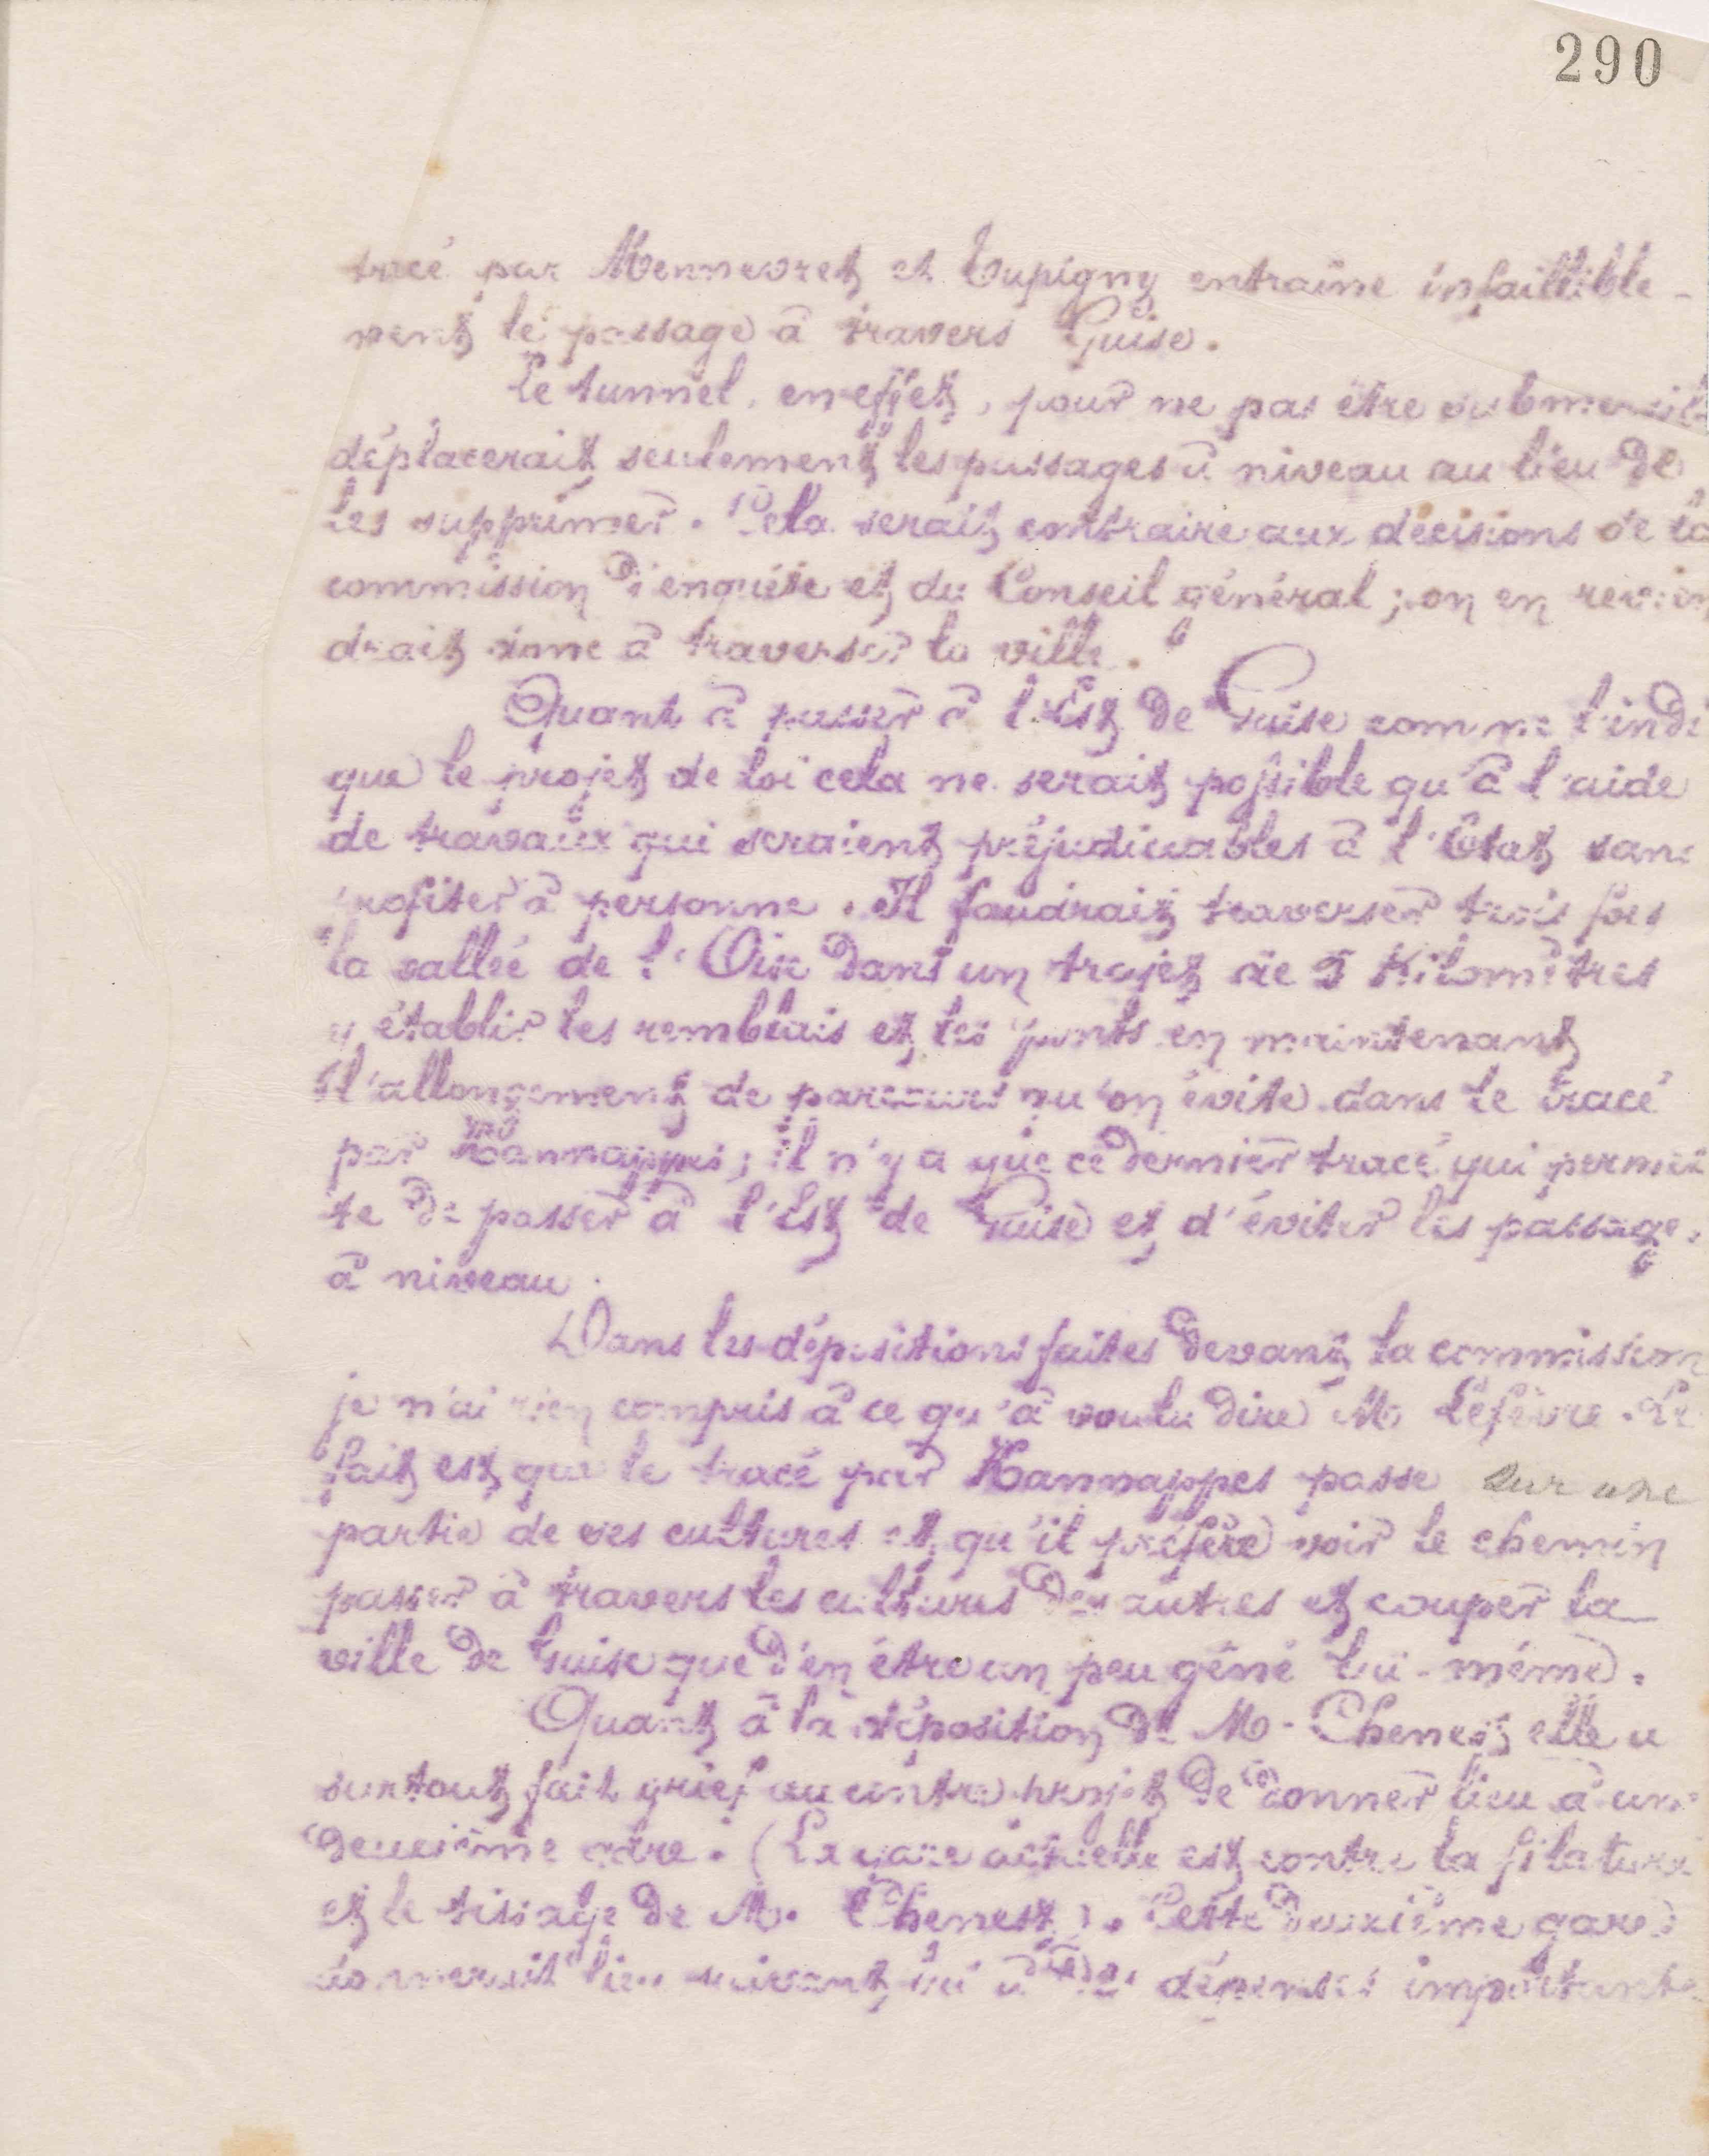 290
tracé par Mennevret et Tupigny entraîne infaillible-
ment le passage à travers Guise.
Le tunnel, en effet, pour ne pas être submersible
déplacerait seulement les passages à niveau au lieu de
les supprimer. Cela serait contraire aux décisions de la
commission d'enquête et du Conseil général ; on en revien
drait donc à traverser la ville.
Quant à passer à l'Est de Guise comme l'indi
que le projet de loi cela ne serait possible qu'à l'aide
de travaux qui seraient préjudiciables à l'État sans
profiter à personne. Il faudrait traverser trois fois
la vallée de l'Oise dans un trajet de 5 Kilomètres
y établir les remblais et les ponts en maintenant
l'allongement de parcours qu'on évite dans le tracé
par Hannappes ; il n'y a que ce dernier tracé qui permet
te de passer à l'Est de Guise et d'éviter les passages
à niveau.
Dans les dépositions faites devant la commission
je n'ai rien compris à ce qu'a voulu dire M. Lefèvre. Le
fait est que le tracé par Hannappes passe sur une
partie de ses cultures et qu'il préfère voir le chemin
passer à travers les cultures des autres et couper la
ville de Guise que d'en être un peu gêné lui-même.
Quant à la déposition de M. Chenest elle a
surtout fait grief au contre-projet de donner lieu à une
deuxième gare. (La gare actuelle est contre la filature
et le tissage de M. Chenest). Cette deuxième gare
donnerait lieu suivant lui à des dépenses importantes